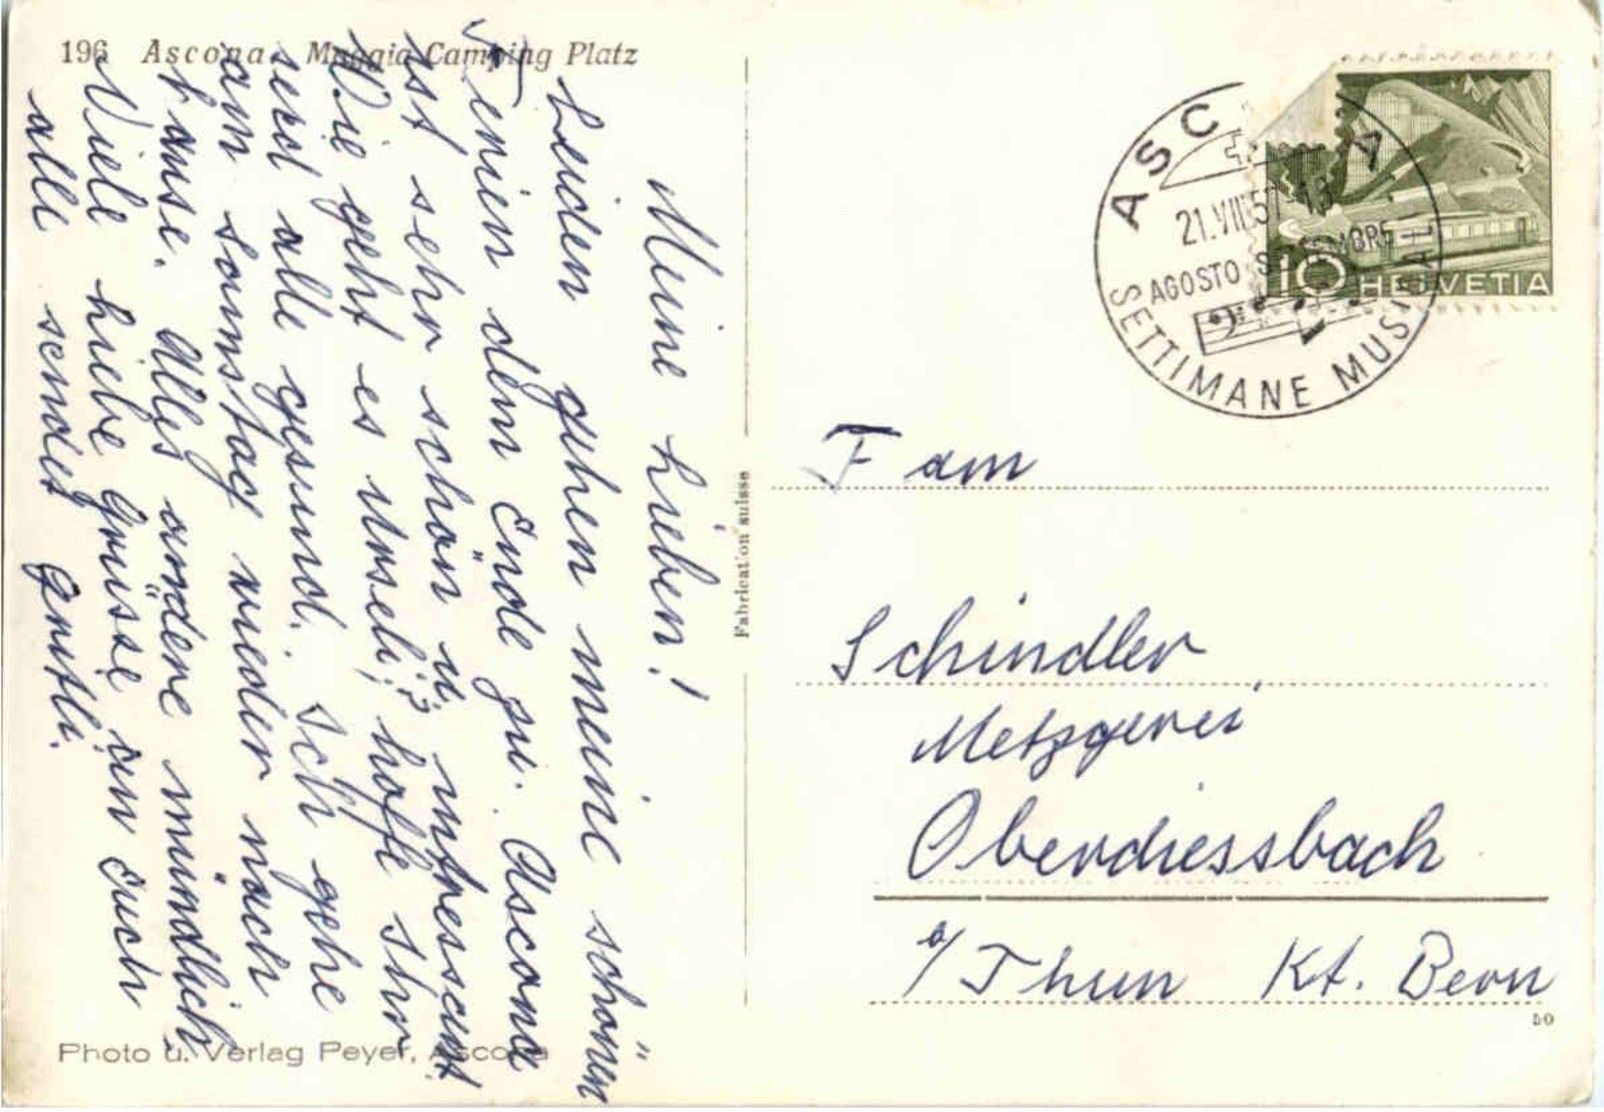 196 Ascona. Maggia Camping Platz
Meine Lieben!
Leider gehen meine schönen
Ferien dem Ende zu. Ascona
ist sehr schön u. interessant
Wie geht es Urseli,? hoffe Ihr
seid alle gesund. Ich gehe
am Samstag wieder nach
hause. Alles andere mündlich.
Viele liebe Grüsse an Euch
alle sendet
Fabrication suisse
Photo u. Verlag Peyer, Ascona
ASCONA
21.VIII.57-13
AGOSTO SETTEMBRE
SETTIMANE MUSICALI
10 HELVETIA
Fam
Schindler
Metzgerei
Oberdiessbach
a/Thun Kt. Bern
50